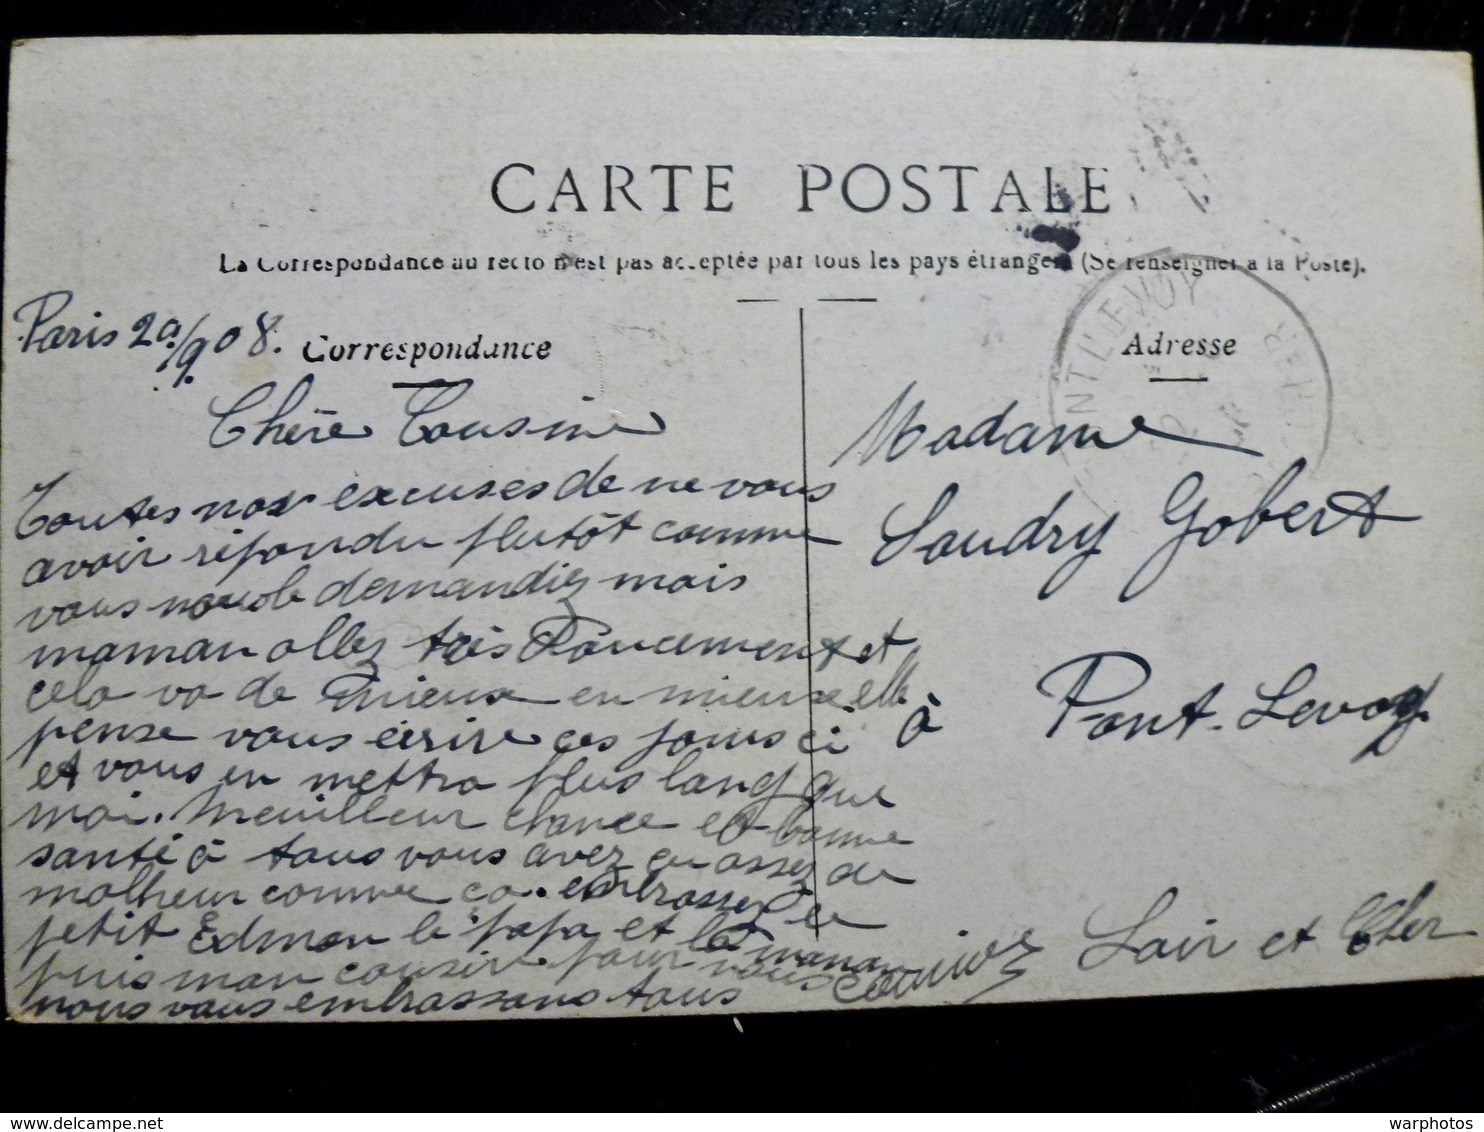 CARTE POSTALE
La Correspondance au recto n'est pas acceptée par tous les pays étrangers (Se renseigner à la Poste).
Paris 20/9 08. Correspondance
Chère Cousine
Toutes nos excuses de ne vous
avoir répondu plutôt comme
vous nous le demandiez mais
maman allez très doucement et
cela va de mieux en mieux elle
pense vous écrire ces jours ci
et vous en mettra plus long que
moi. Meuilleur chance et bonne
santé à tous vous avez eu assez de
malheur comme ça. embrassez le
petit Edmon le papa et la maman
puis mon cousin pour nous
nous vous embrassons tous
Adresse
Madame
Soudry Gobert
à Pont-Levoy
Loir et Cher
PONTLEVOY
LOIR-ET-CHER
warphotos